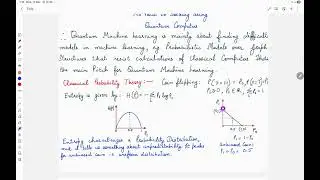 Quantum Computer
∴ Quantum Machine Learning is mainly about finding difficult
models in machine learning, eg Probabilistic Models over Graph
Structures that resist calculations of classical Computer. This is
the main Pitch for Quantum Machine Learning.
Classical Probability Theory :- Coin flipping: P(x=0) = P0 P(x=1)=P1
Pi ≥ 0, Pi ∈ R, Σ Pi = 1
Entropy is given by: H(P) = - Σ Pi log Pi
Entropy characterizes a Probability Distribution,
and it tells us something about unpredictability. It peaks
for unbiased coin → uniform distribution.
P1 = 1 - P0
Unbiased Coin:
P1 = P0 = 0.5